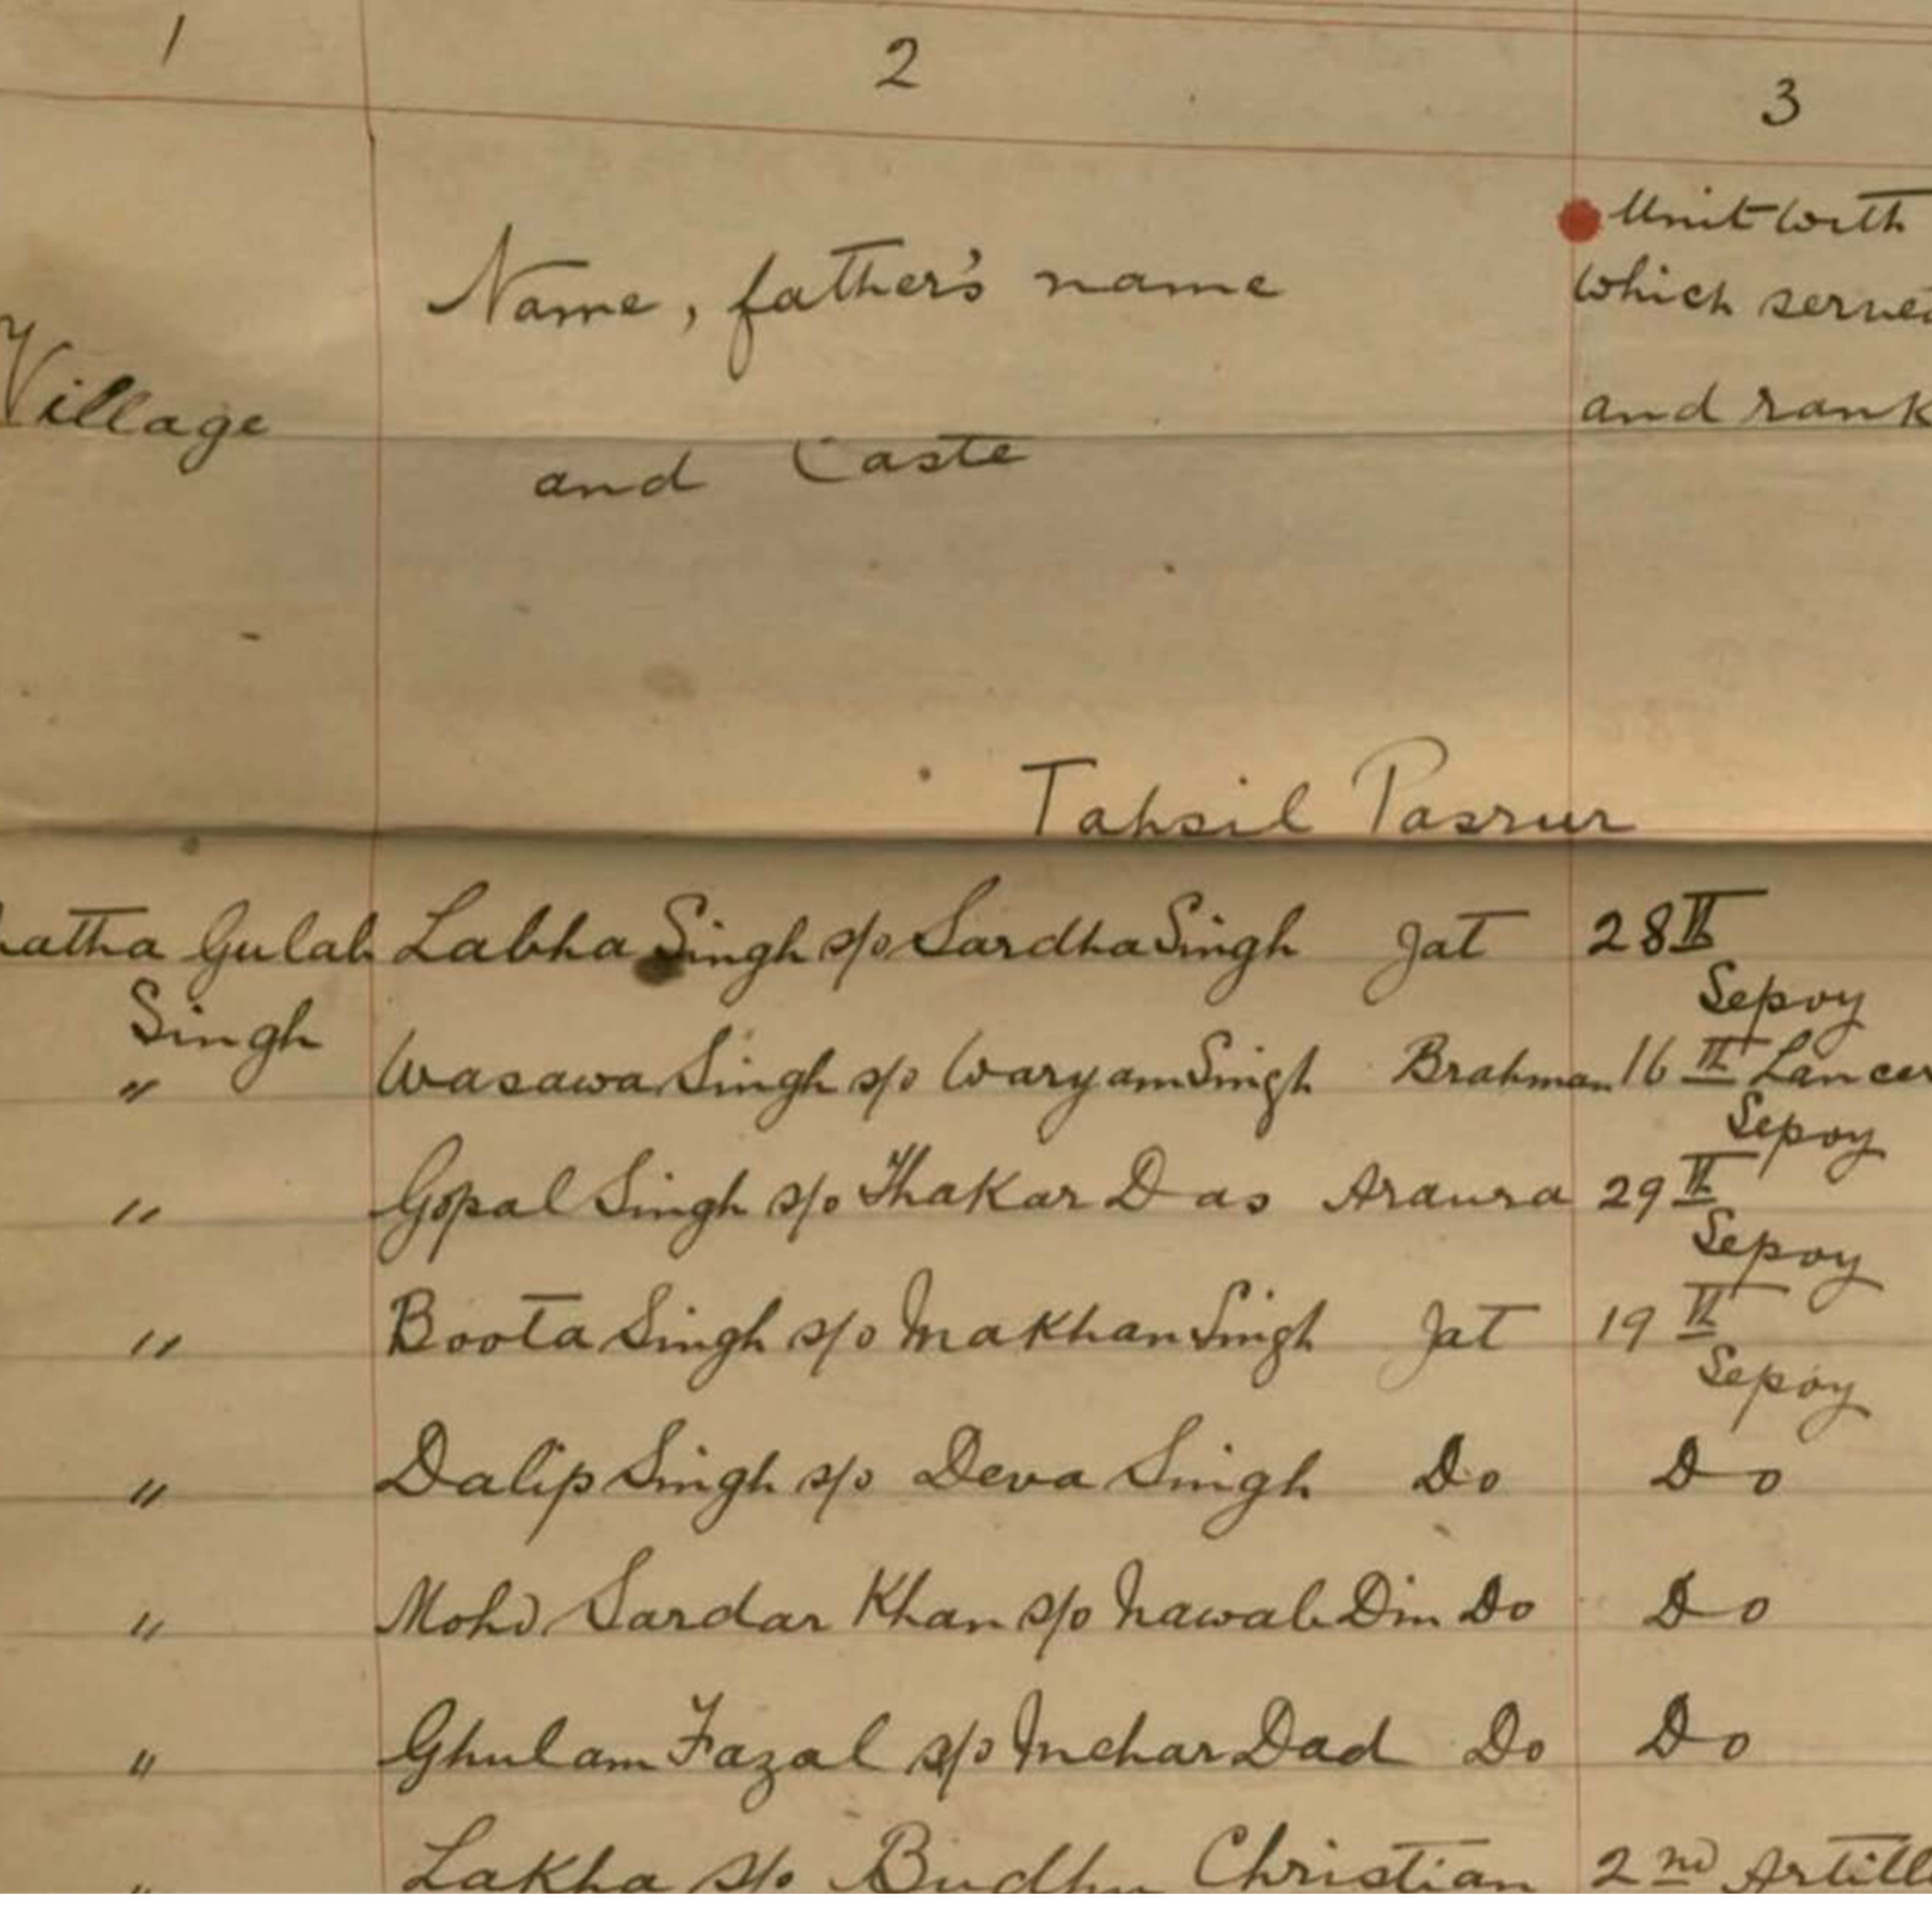 1 2 3
Village
Name, father's name
and Caste
Unit with
which served
and rank
Tahsil Pasrur
Gulab Labha Singh s/o Sardha Singh Jat 28th
Singh Sepoy
" Wasawa Singh s/o Waryam Singh Brahman 16th Lancer
Sepoy
" Gopal Singh s/o Thakar Das Araura 29th
Sepoy
" Boota Singh s/o Makhan Singh Jat 19th
Sepoy
" Dalip Singh s/o Deva Singh Do Do
" Mohd Sardar Khan s/o Nawab Din Do Do
" Ghulam Fazal s/o Mehar Dad Do Do
" Lakha s/o Budhu Christian 2nd Artill